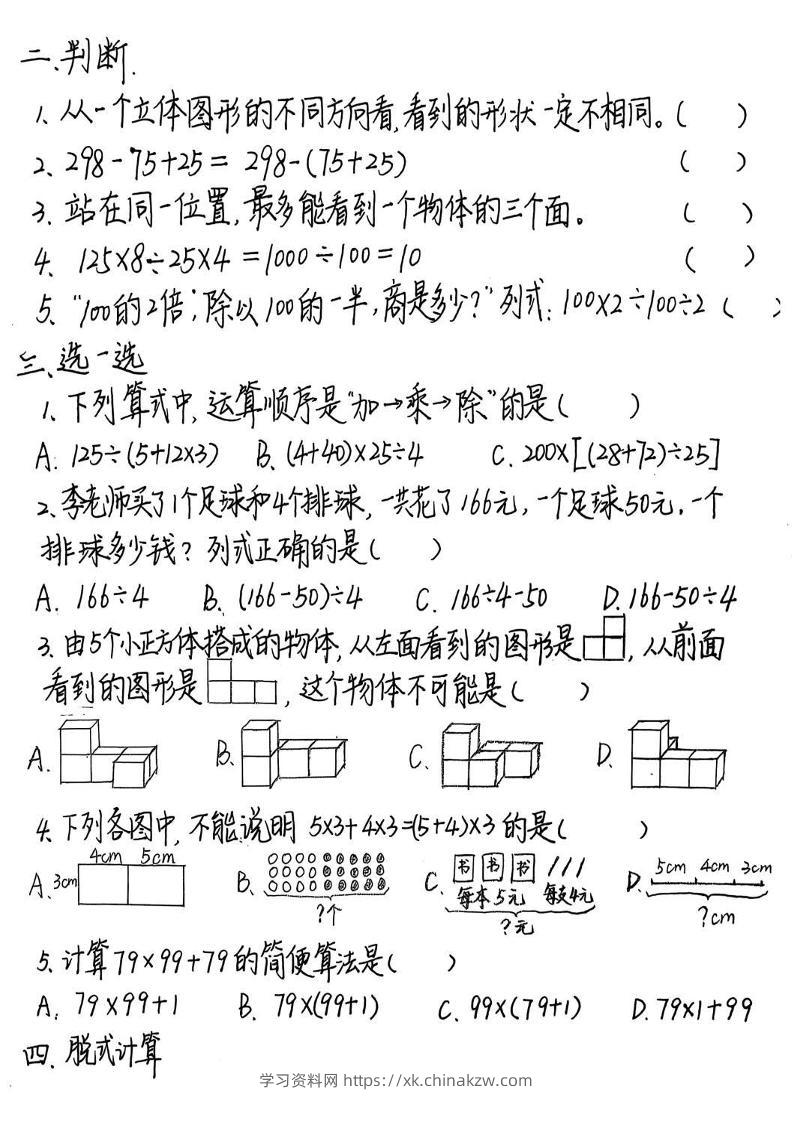 二、判断.
1、从一个立体图形的不同方向看,看到的形状一定不相同。( )
2、298-75+25= 298-(75+25) ( )
3、站在同一位置,最多能看到一个物体的三个面。 ( )
4、125×8÷25×4 =1000÷100=10 ( )
5、"100的2倍,除以100的一半,商是多少?"列式:100×2÷100÷2 ( )
三、选一选
1、下列算式中,运算顺序是"加→乘→除"的是( )
A. 125÷(5+12×3) B. (4+40)×25÷4 C. 200×[(28+72)÷25]
2、李老师买了1个足球和4个排球,一共花了166元,一个足球50元,一个
排球多少钱?列式正确的是( )
A. 166÷4 B. (166-50)÷4 C. 166÷4-50 D.166-50÷4
3、由5个小正方体搭成的物体,从左面看到的图形是 ,从前面
看到的图形是 ,这个物体不可能是( )
A. B. C. D.
4、下列各图中,不能说明 5×3+4×3=(5+4)×3 的是( )
A. 3cm 4cm 5cm B. ?个 C. 书 书 书 每本5元 每支4元 ?元 D. 5cm 4cm 3cm ?cm
5、计算79×99+79的简便算法是( )
A. 79×99+1 B. 79×(99+1) C. 99×(79+1) D.79×1+99
四、脱式计算
学习资料网 https://xk.chinakzw.com